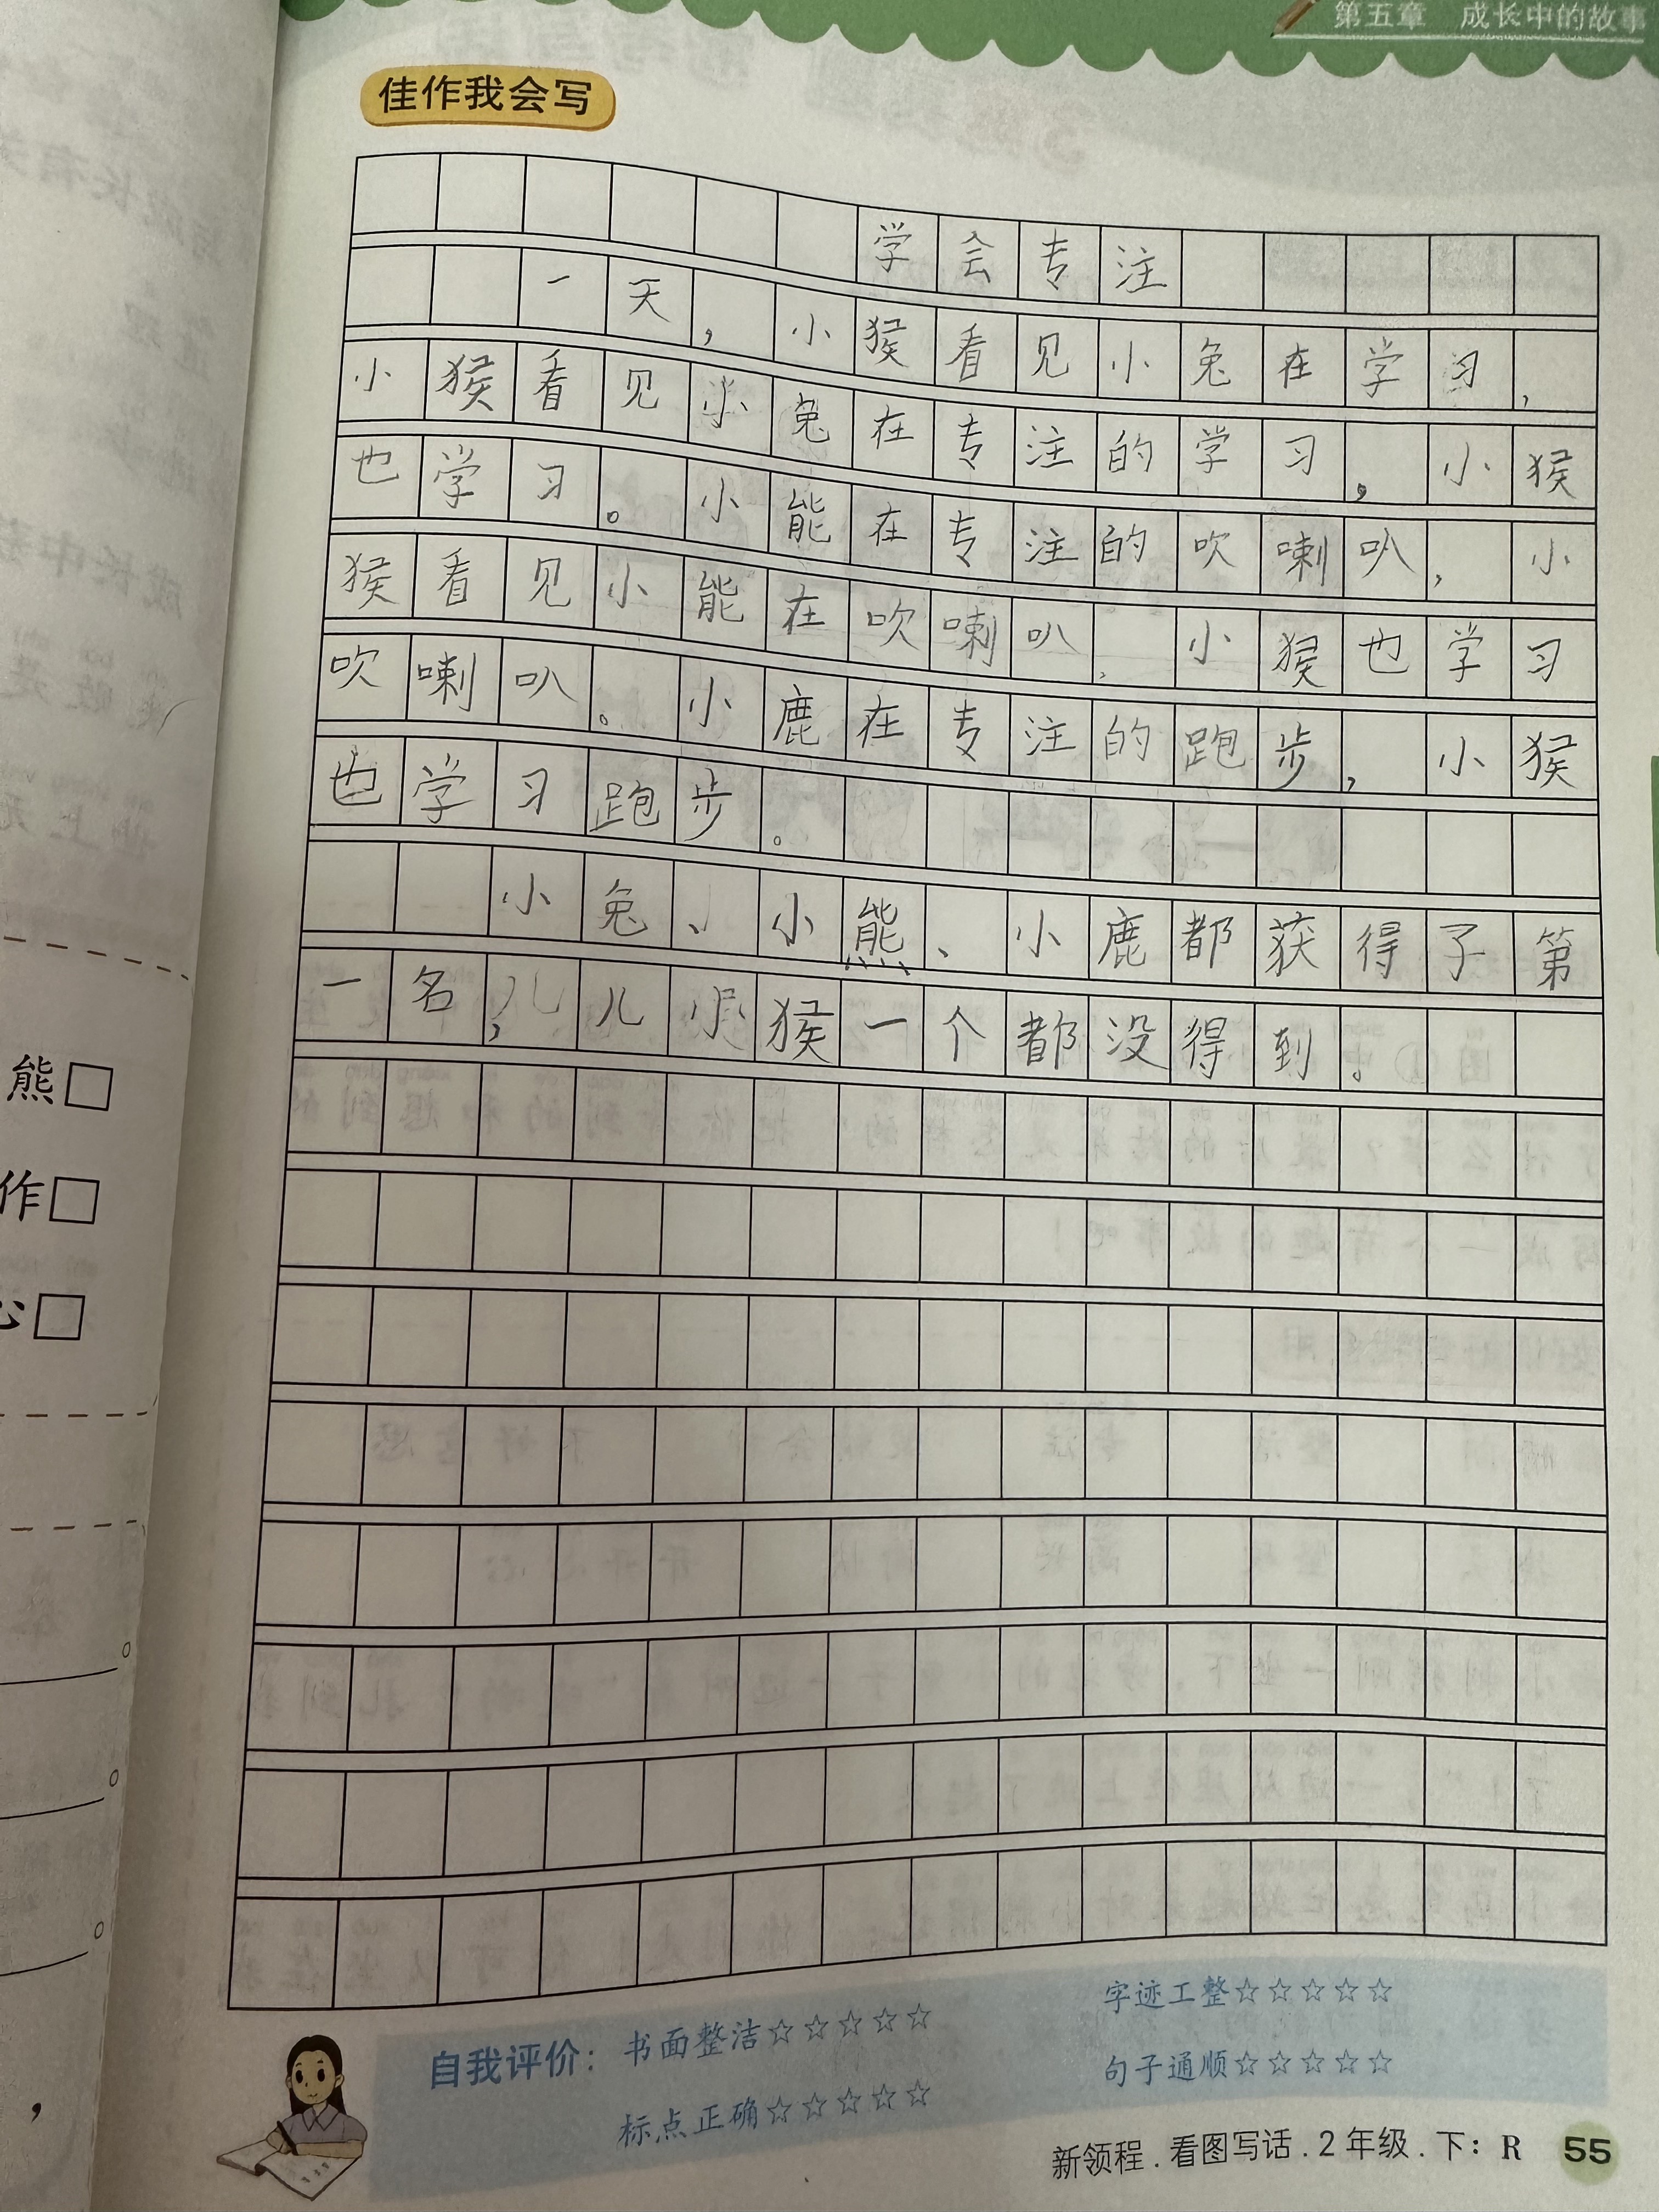 第五章 成长中的故事
佳作我会写
学会专注
一天,小猴看见小兔在学习,
小猴看见小兔在专注的学习,小猴
也学习。小能在专注的吹喇叭,小
猴看见小能在吹喇叭,小猴也学习
吹喇叭。小鹿在专注的跑步,小猴
也学习跑步。
小兔、小熊、小鹿都获得了第
一名,儿儿小猴一个都没得到。
熊□
作□
心□
自我评价:书面整洁☆☆☆☆☆ 字迹工整☆☆☆☆☆
标点正确☆☆☆☆☆ 句子通顺☆☆☆☆☆
新领程.看图写话.2年级.下:R 55